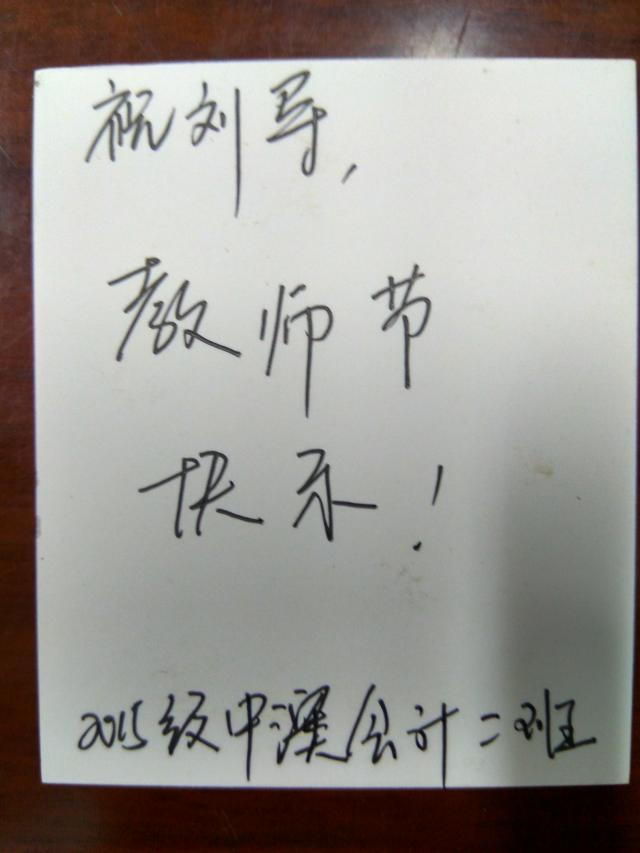 祝刘导，
教师节
快乐！
2015级中澳会计二班